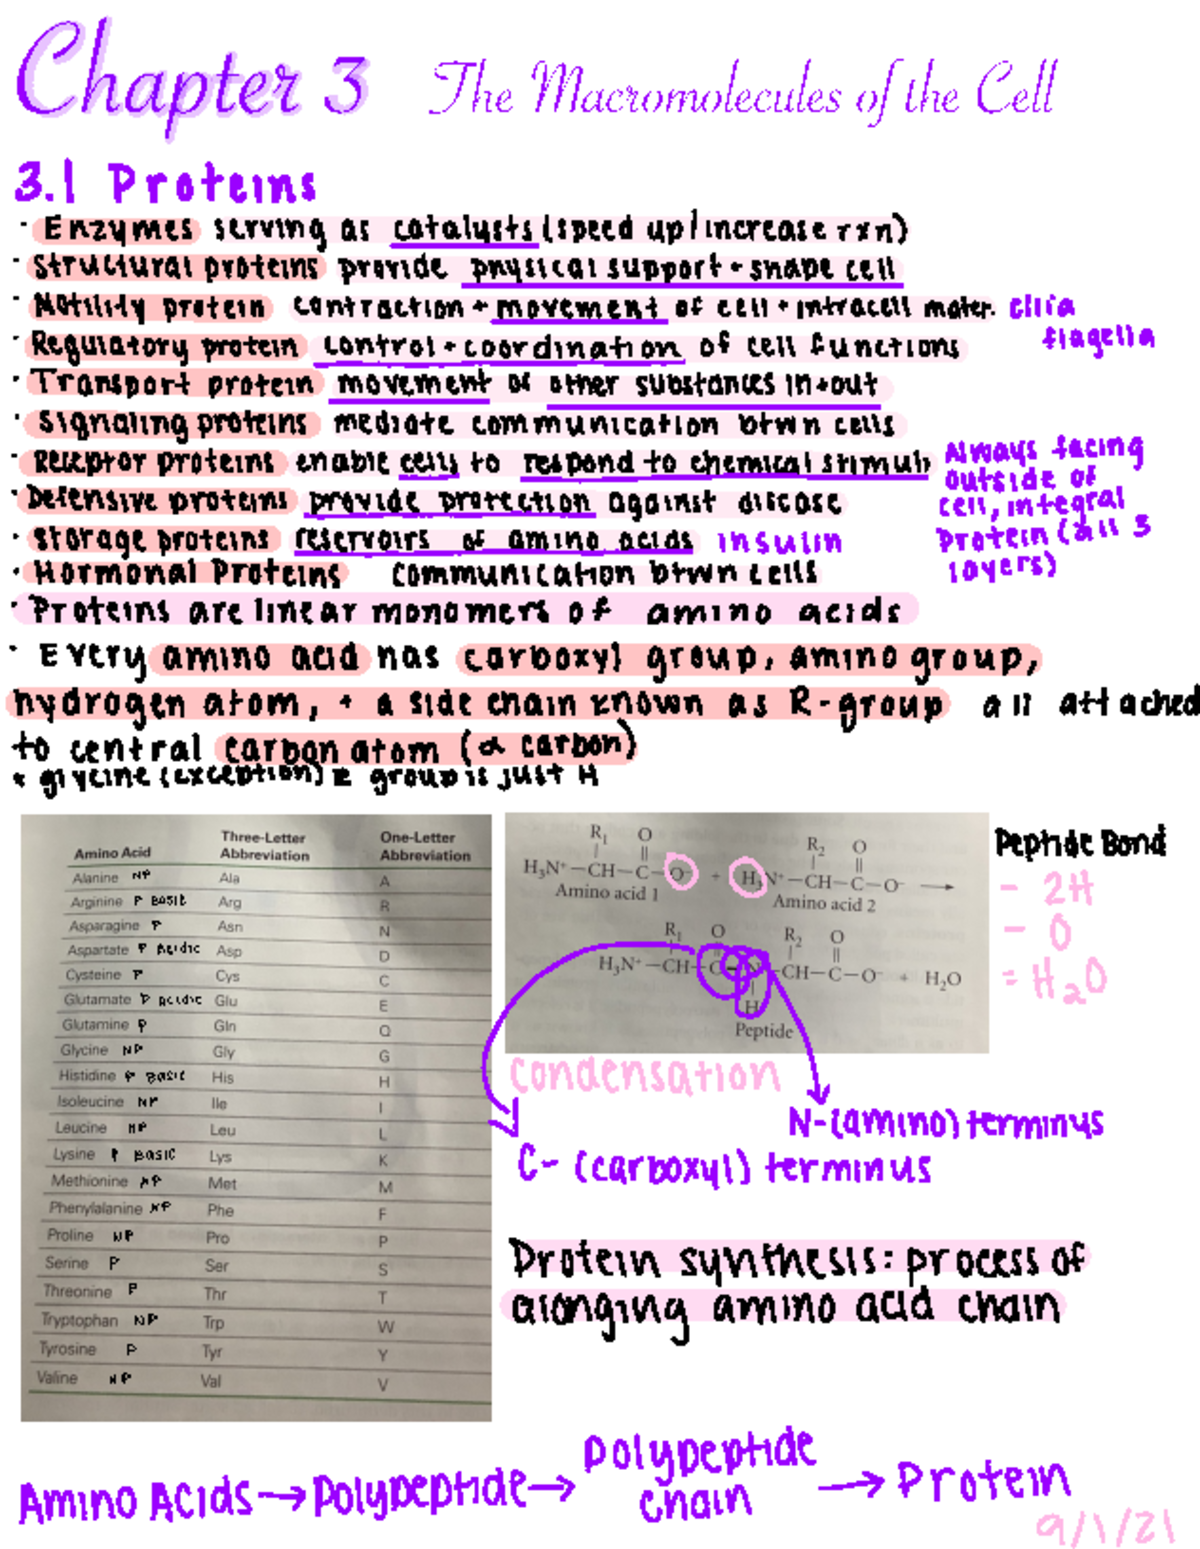 Chapter 3 The Macromolecules of the Cell
3.1 Proteins
· Enzymes serving as catalysts (speed up/increase rxn)
· Structural proteins provide physical support + shape cell
· Motility protein contraction + movement of cell + intracell mater. cilia
flagella
· Regulatory protein control + coordination of cell functions
· Transport protein movement of other substances in + out
· Signaling proteins mediate communication btwn cells
· Receptor proteins enable cells to respond to chemical stimuli
Always facing
outside of
cell, integral
protein (all 3
layers)
· Defensive proteins provide protection against disease
· Storage proteins reservoirs of amino acids insulin
· Hormonal Proteins communication btwn cells
· Proteins are linear monomers of amino acids
· Every amino acid has carboxyl group, amino group,
hydrogen atom, + a side chain known as R-group all attached
to central carbon atom (α carbon)
* glycine (exception) R group is just H
Amino Acid Three-Letter Abbreviation One-Letter Abbreviation
Alanine NP Ala A
Arginine P Basic Arg R
Asparagine P Asn N
Aspartate P Acidic Asp D
Cysteine P Cys C
Glutamate P Acidic Glu E
Glutamine P Gln Q
Glycine NP Gly G
Histidine P Basic His H
Isoleucine NP Ile I
Leucine NP Leu L
Lysine P Basic Lys K
Methionine NP Met M
Phenylalanine NP Phe F
Proline NP Pro P
Serine P Ser S
Threonine P Thr T
Tryptophan NP Trp W
Tyrosine P Tyr Y
Valine NP Val V
R₁ O R₂ O
H₃N⁺—CH—C—O⁻ + H₃N⁺—CH—C—O⁻ →
Amino acid 1 Amino acid 2
R₁ O R₂ O
H₃N⁺—CH—C—N—CH—C—O⁻ + H₂O
H
Peptide
Peptide Bond
- 2H
- O
= H₂O
Condensation
N-(amino) terminus
C- (carboxyl) terminus
Protein synthesis: process of
alonging amino acid chain
Amino Acids → Polypeptide → polypeptide chain → Protein
9/1/21